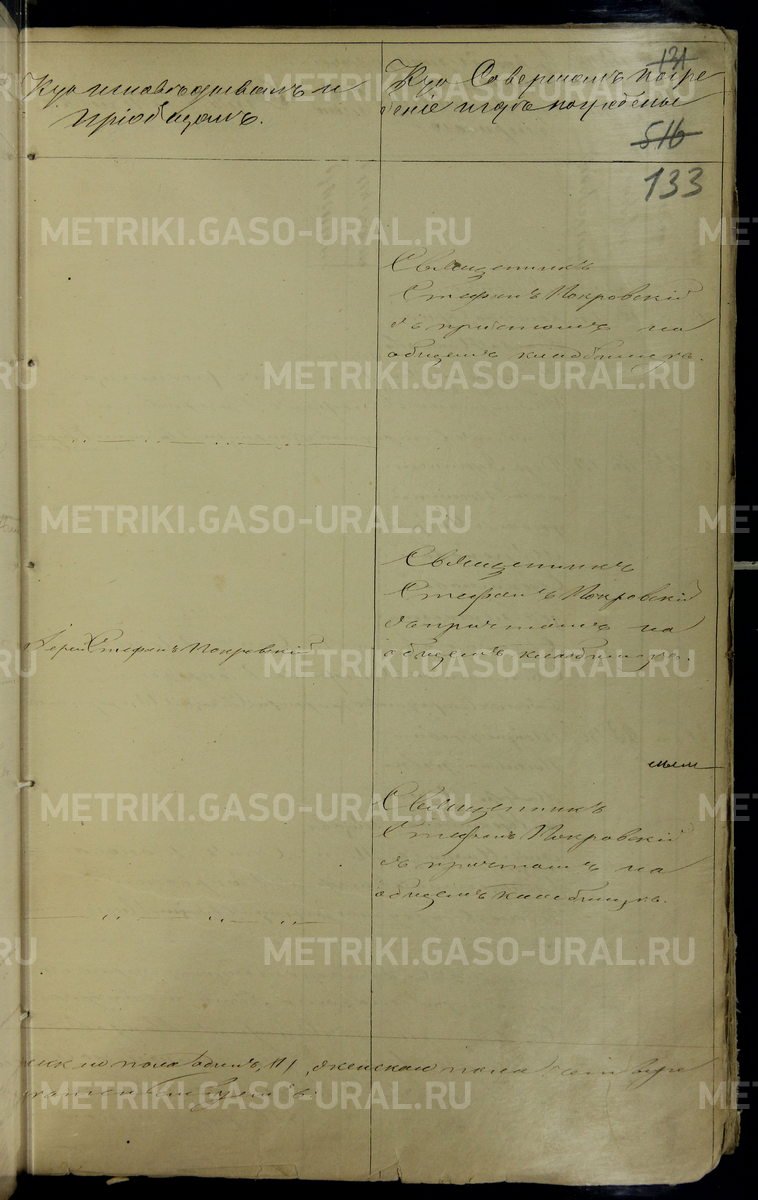 131
Кто исповѣдывалъ и
пріобщалъ.
Кто Совершалъ погре
беніе и гдѣ погребены
516
133
Священникъ
Стефанъ Покровскій
съ причтомъ на
общемъ кладбищѣ.
Священникъ
Стефанъ Покровскій
съ причтомъ на
общемъ кладбищѣ.
Іерей Стефанъ Покровскій
Священникъ
Стефанъ Покровскій
съ причтомъ на
общемъ кладбищѣ.
пола одинъ /1/, женскаго пола
METRIKI.GASO-URAL.RU